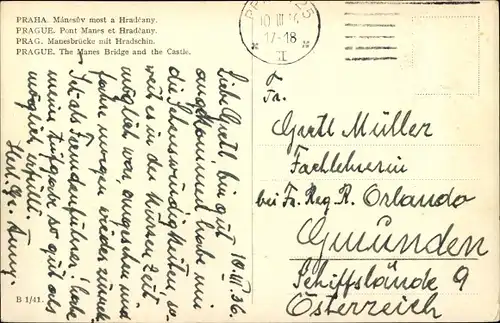 PRAHA. Mánesův most a Hradčany.
PRAGUE. Pont Manes et Hradčany.
PRAG. Manesbrücke mit Hradschin.
PRAGUE. The Manes Bridge and the Castle.
25
10 III 36
17-18
II
10.III.36.
Liebe Gretl, bin gut
angekommen, habe mir
die Sehenswürdigkeiten so-
weit es in der kurzen Zeit
möglich war, angesehen und
fahre morgen wieder zurück.
als Fremdenführer! habe
meine Aufgabe so gut als
möglich erfüllt.
Herzl. Gr.
Fr.
Gretl Müller
Fachlehrerin
bei Fr. Reg. R. Orlando
Gmunden
Schiffslände 9
Österreich
B 1/41.